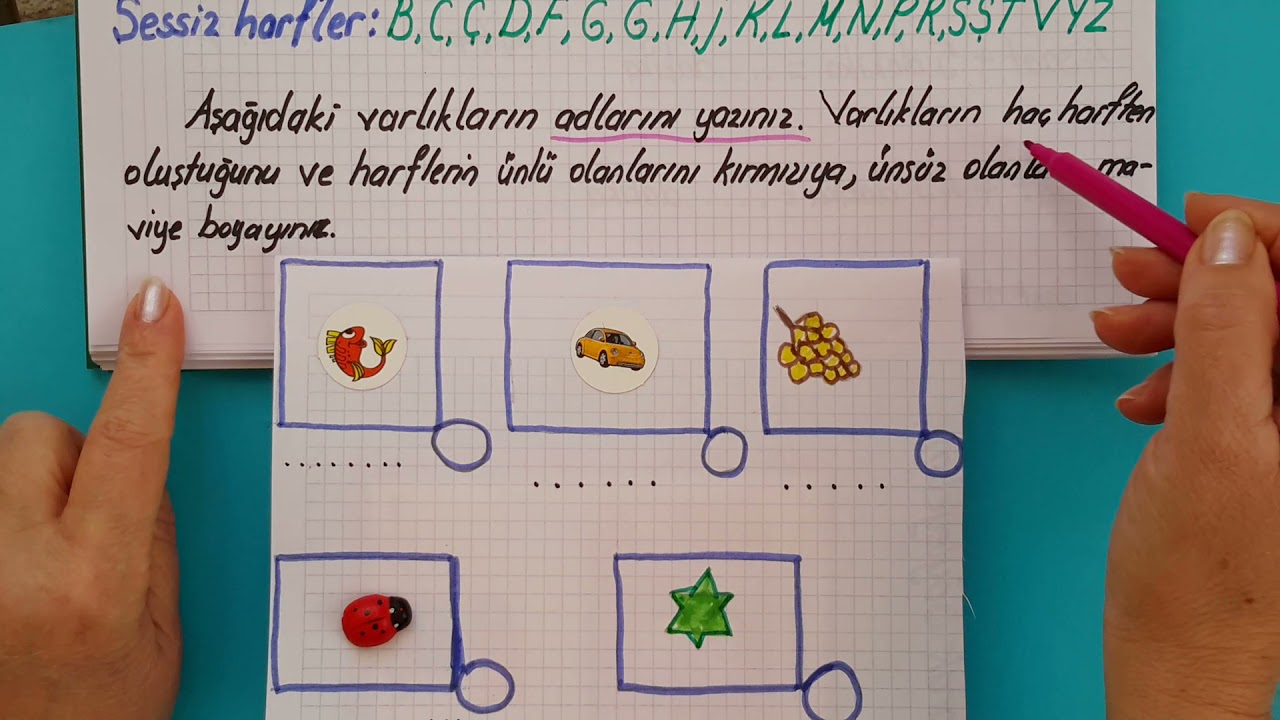 Sessiz harfler: B, C, Ç, D, F, G, G, H, J, K, L, M, N, P, R, S Ş T V Y Z
Aşağıdaki varlıkların adlarını yazınız. Varlıkların haç harften
oluştuğunu ve harflerin ünlü olanlarını kırmızıya, ünsüz ma-
viye boyayınız.